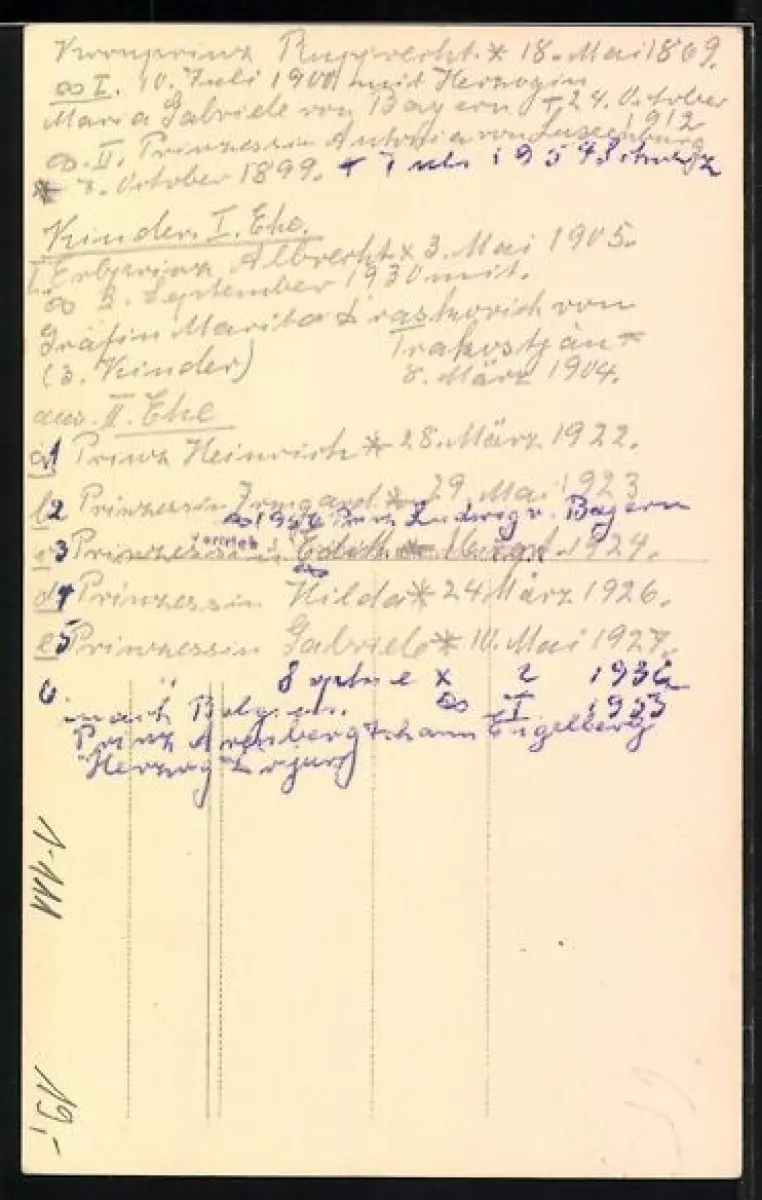 Kronprinz Rupprecht * 18. Mai 1869.
∞ I. 10. Juli 1900 mit Herzogin
Maria Gabriele von Bayern + 24. October
1912
∞. II. Prinzessin Antonia von Luxemburg
* 7. October 1899. + Juli 1954 Schweiz
Kinder. I. Ehe.
Erbprinz Albrecht x 3. Mai 1905.
∞ 3. September 1930 mit.
Gräfin Marita Draskovich von
Trakostján *
(3. Kinder) 8. März 1904.
aus. II. Ehe
1 Prinz Heinrich * 28. März 1922.
2 Prinzessin Irmgard * 29 Mai 1923
∞ 1950 Prinz Ludwig v. Bayern
3 Prinzessin Edith 1924.
d4 Prinzessin Hilda * 24 März 1926.
e5 Prinzessin Gabriele * 10. Mai 1927.
6 " Sophie x 2 1935
∞ I 1953
nach Belgien.
Prinz Arenberg Johann Engelberg
Herzog
1-111
19,-